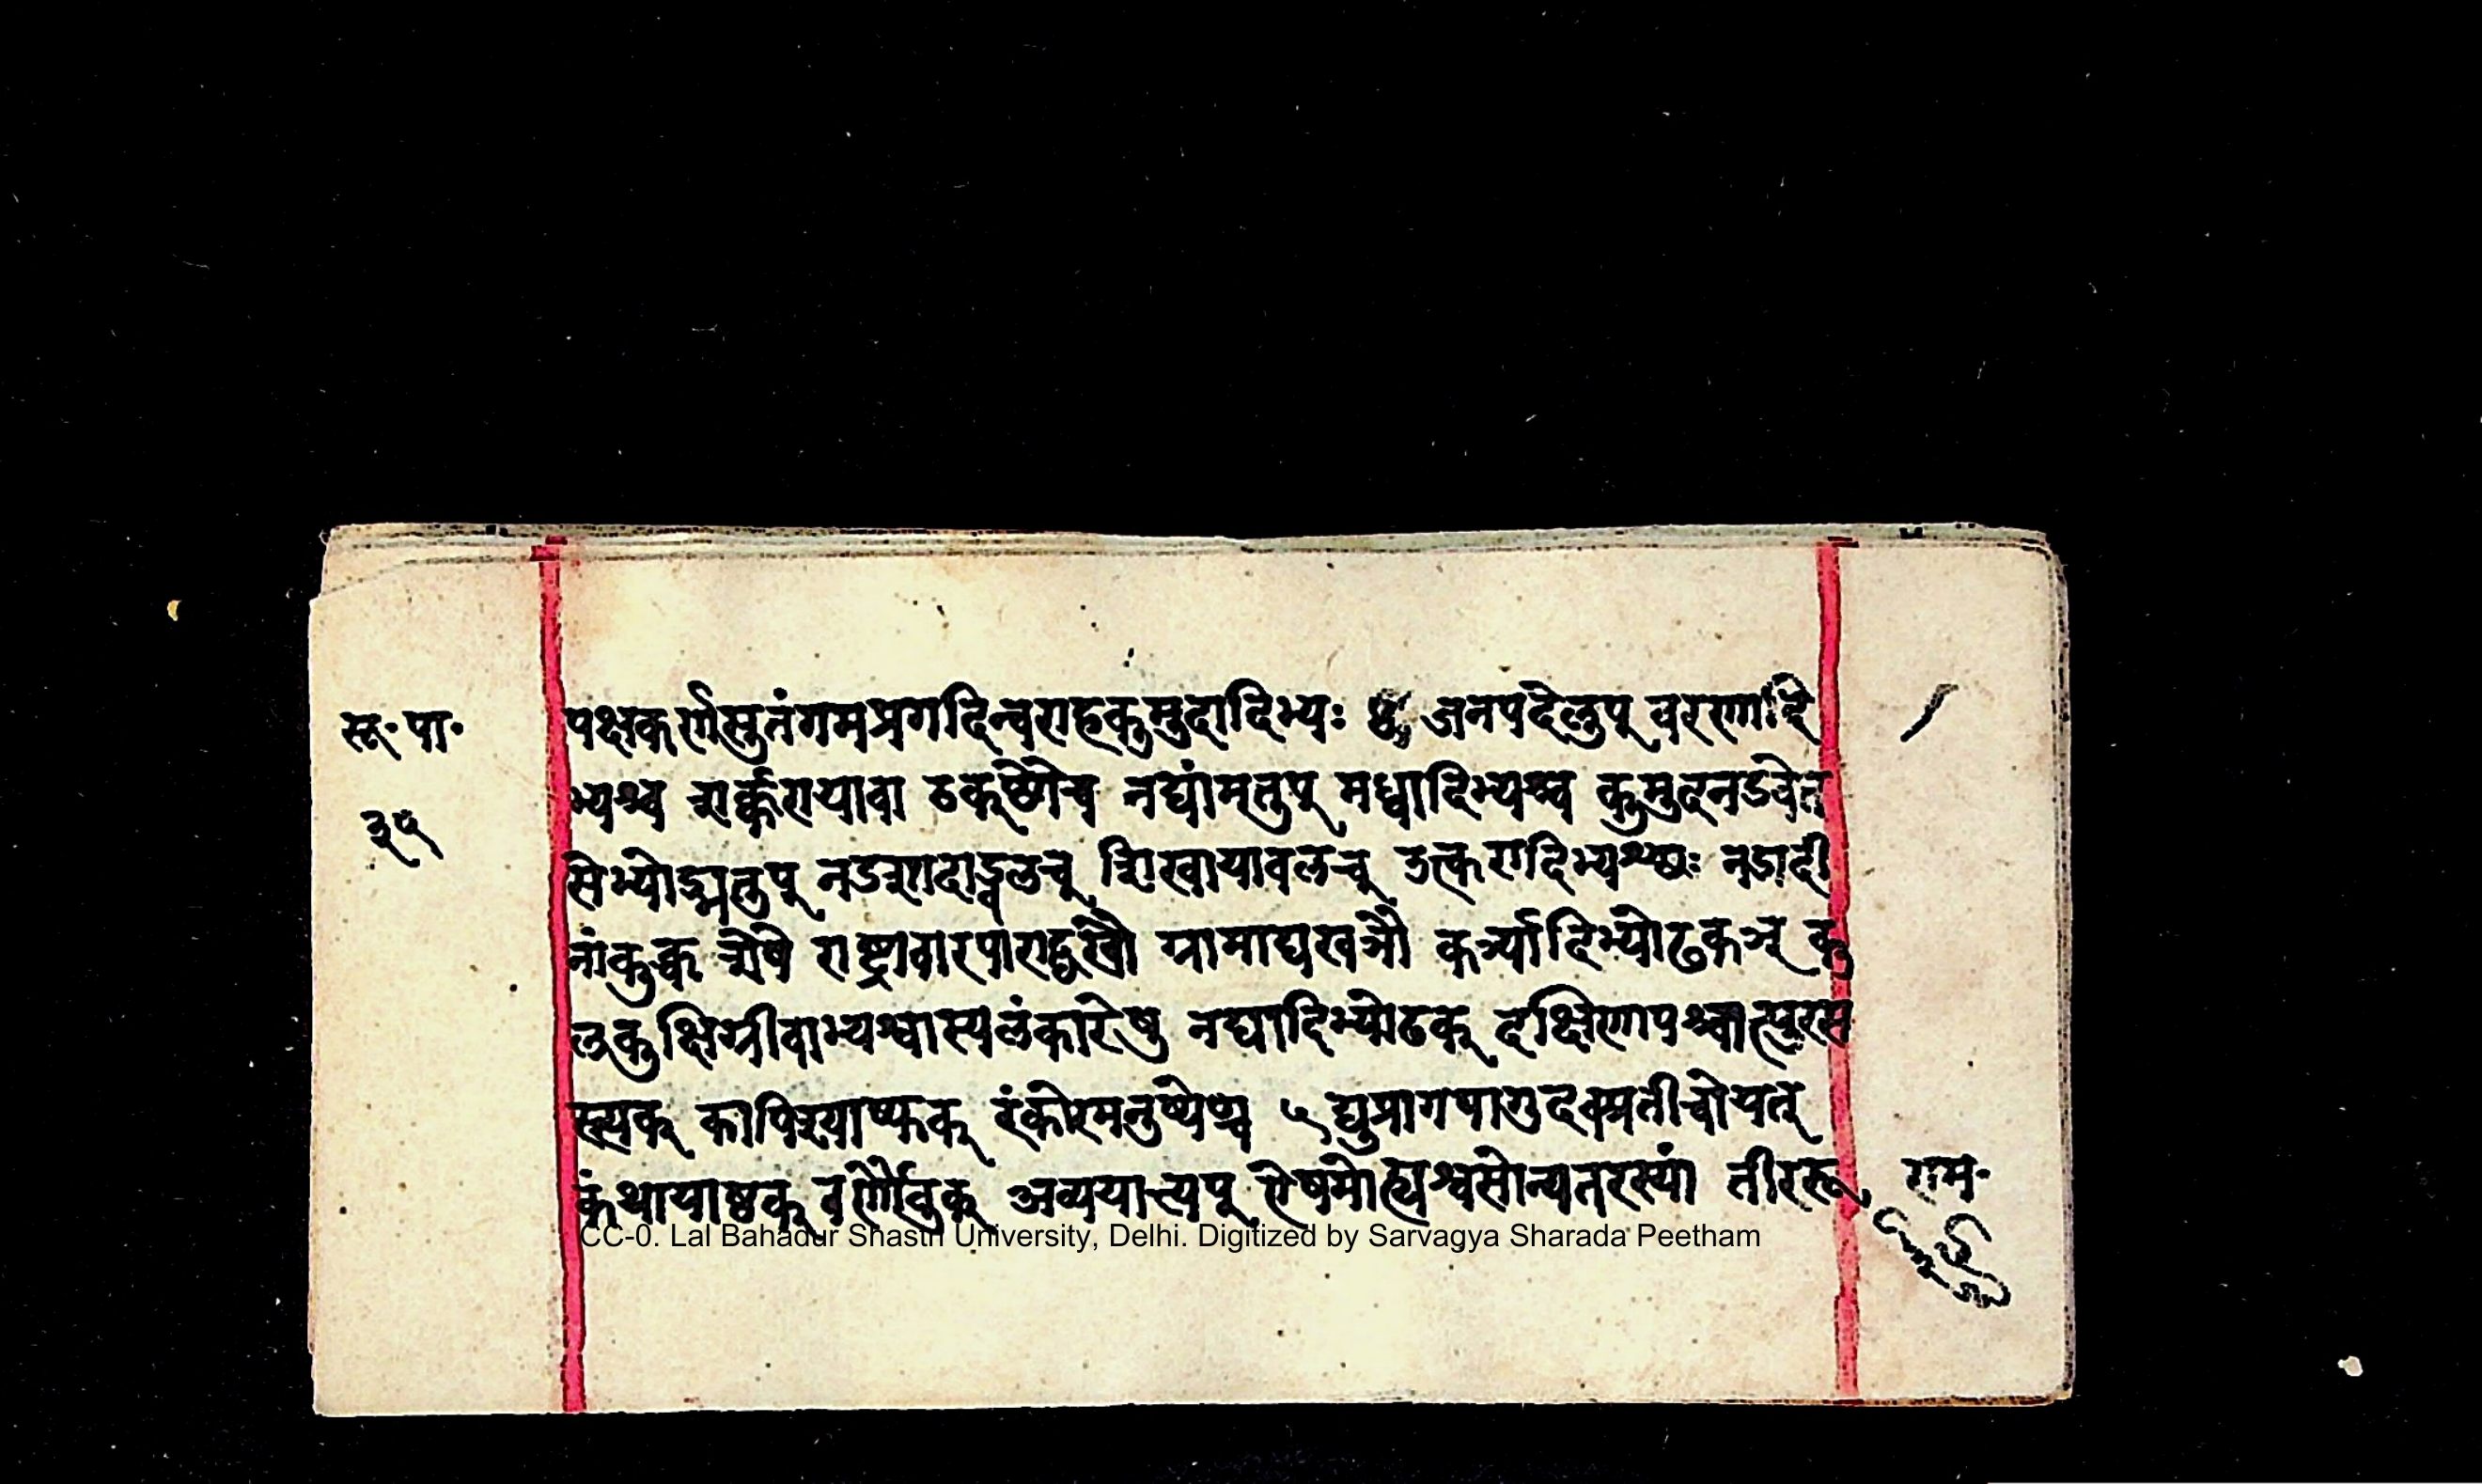 सू॰ पा॰
३५
पक्षकर्णसुतंगमप्रगदिन्वराहकुमुदादिभ्यः ४ जनपदेलुप् वरणादि
भ्यश्च शर्कराया वा ठक्छौच नद्यांमतुप् मध्वादिभ्यश्च कुमुदनडवेत
सेभ्योड्मतुप् नडशादाड्ड्वलच् शिखायावलच् उत्करादिभ्यश्छः नडादी
नांकुक्च शेषे राष्ट्रावारपाराद्घखौ ग्रामाद्यखञौ कत्र्यादिभ्योढकञ् कु
लकुक्षिग्रीवाभ्यश्वास्यलंकारेषु नद्यादिभ्योढक् दक्षिणापश्चात्पुरस
स्त्यक् कापिश्याष्फक् रंकोरमनुष्येण्च ५ द्युप्रागपागुदक्प्रतीचोयत्
कंथायाष्ठक् वर्णौवुक् अव्ययात्त्यप् ऐषमोह्यश्वसोन्यतरस्यां तीररू
राम॰
३५
CC-0. Lal Bahadur Shastri University, Delhi. Digitized by Sarvagya Sharada Peetham